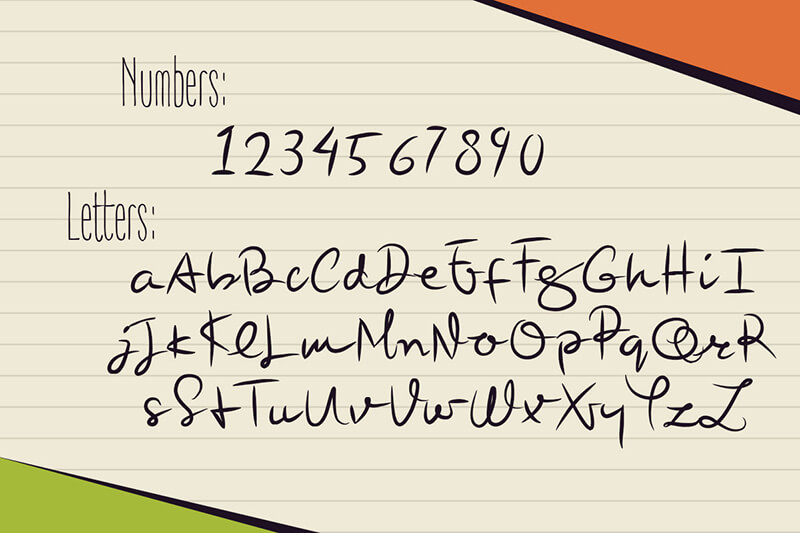 Numbers:
1234567890
Letters:
aAbBcCdDeEfFgGhHiI
jJkKlLmMnNoOpPqQrR
sStTuUvVwWxXyYzZ